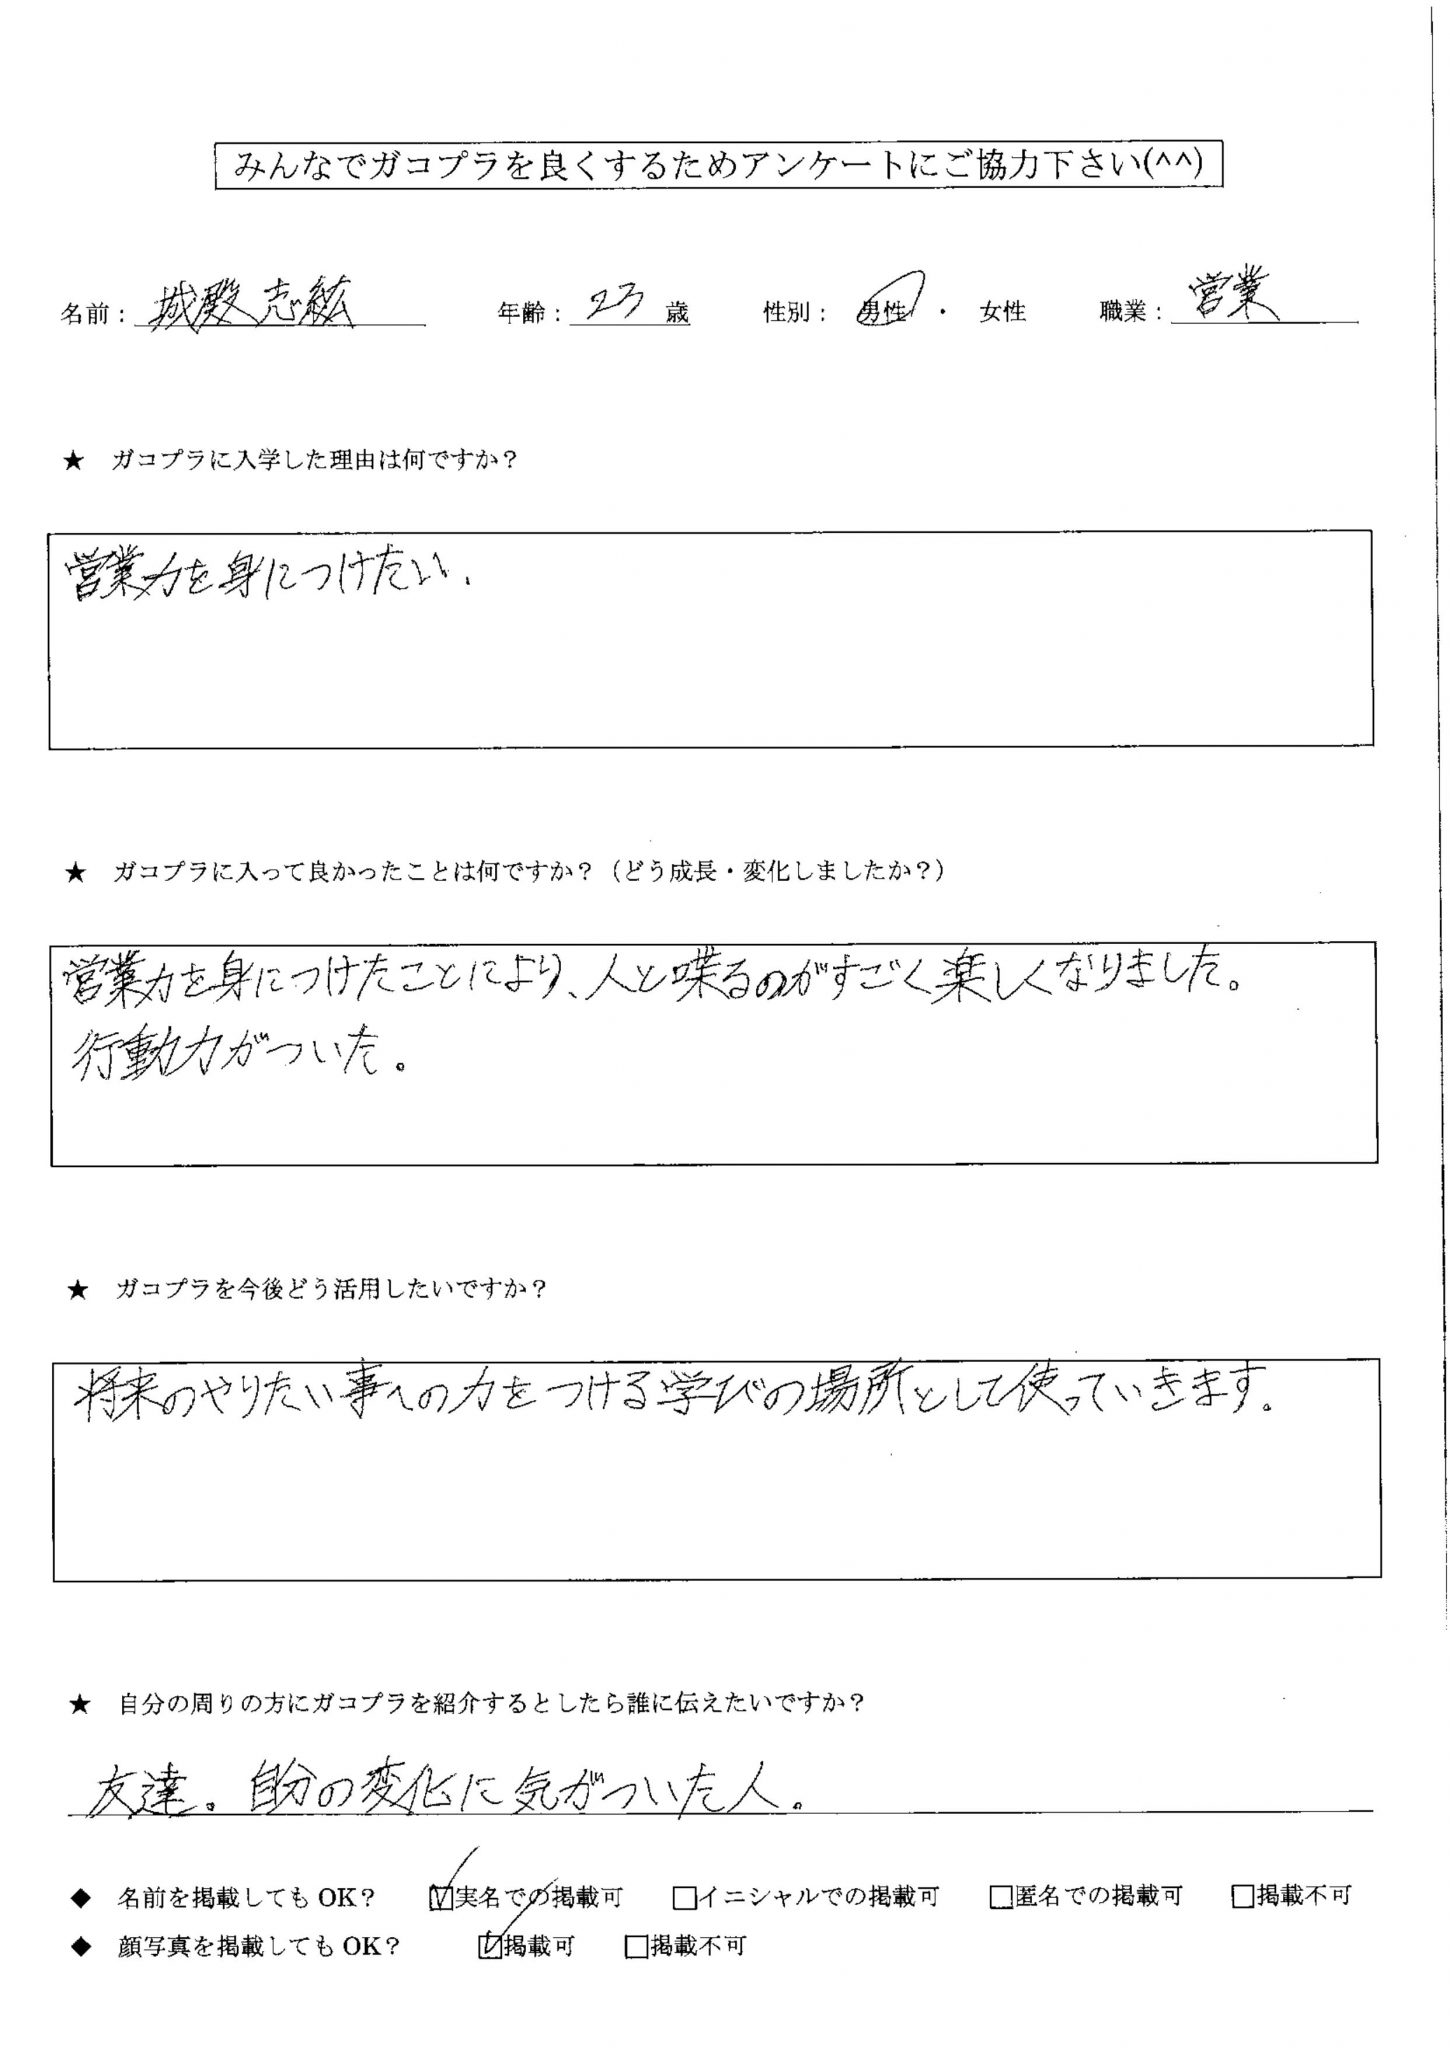 みんなでガコプラを良くするためアンケートにご協力下さい(^^)
名前： 城殿 志紘 年齢： 23 歳 性別： 男性 ・ 女性 職業： 営業
★ ガコプラに入学した理由は何ですか？
営業力を身につけたい.
★ ガコプラに入って良かったことは何ですか？（どう成長・変化しましたか？）
営業力を身につけたことにより、人と喋るのがすごく楽しくなりました。
行動力がついた。
★ ガコプラを今後どう活用したいですか？
将来のやりたい事への力をつける学びの場所として使っていきます。
★ 自分の周りの方にガコプラを紹介するとしたら誰に伝えたいですか？
友達。自分の変化に気がついた人。
◆ 名前を掲載しても OK？ ☑実名での掲載可 □イニシャルでの掲載可 □匿名での掲載可 □掲載不可
◆ 顔写真を掲載しても OK？ ☑掲載可 □掲載不可